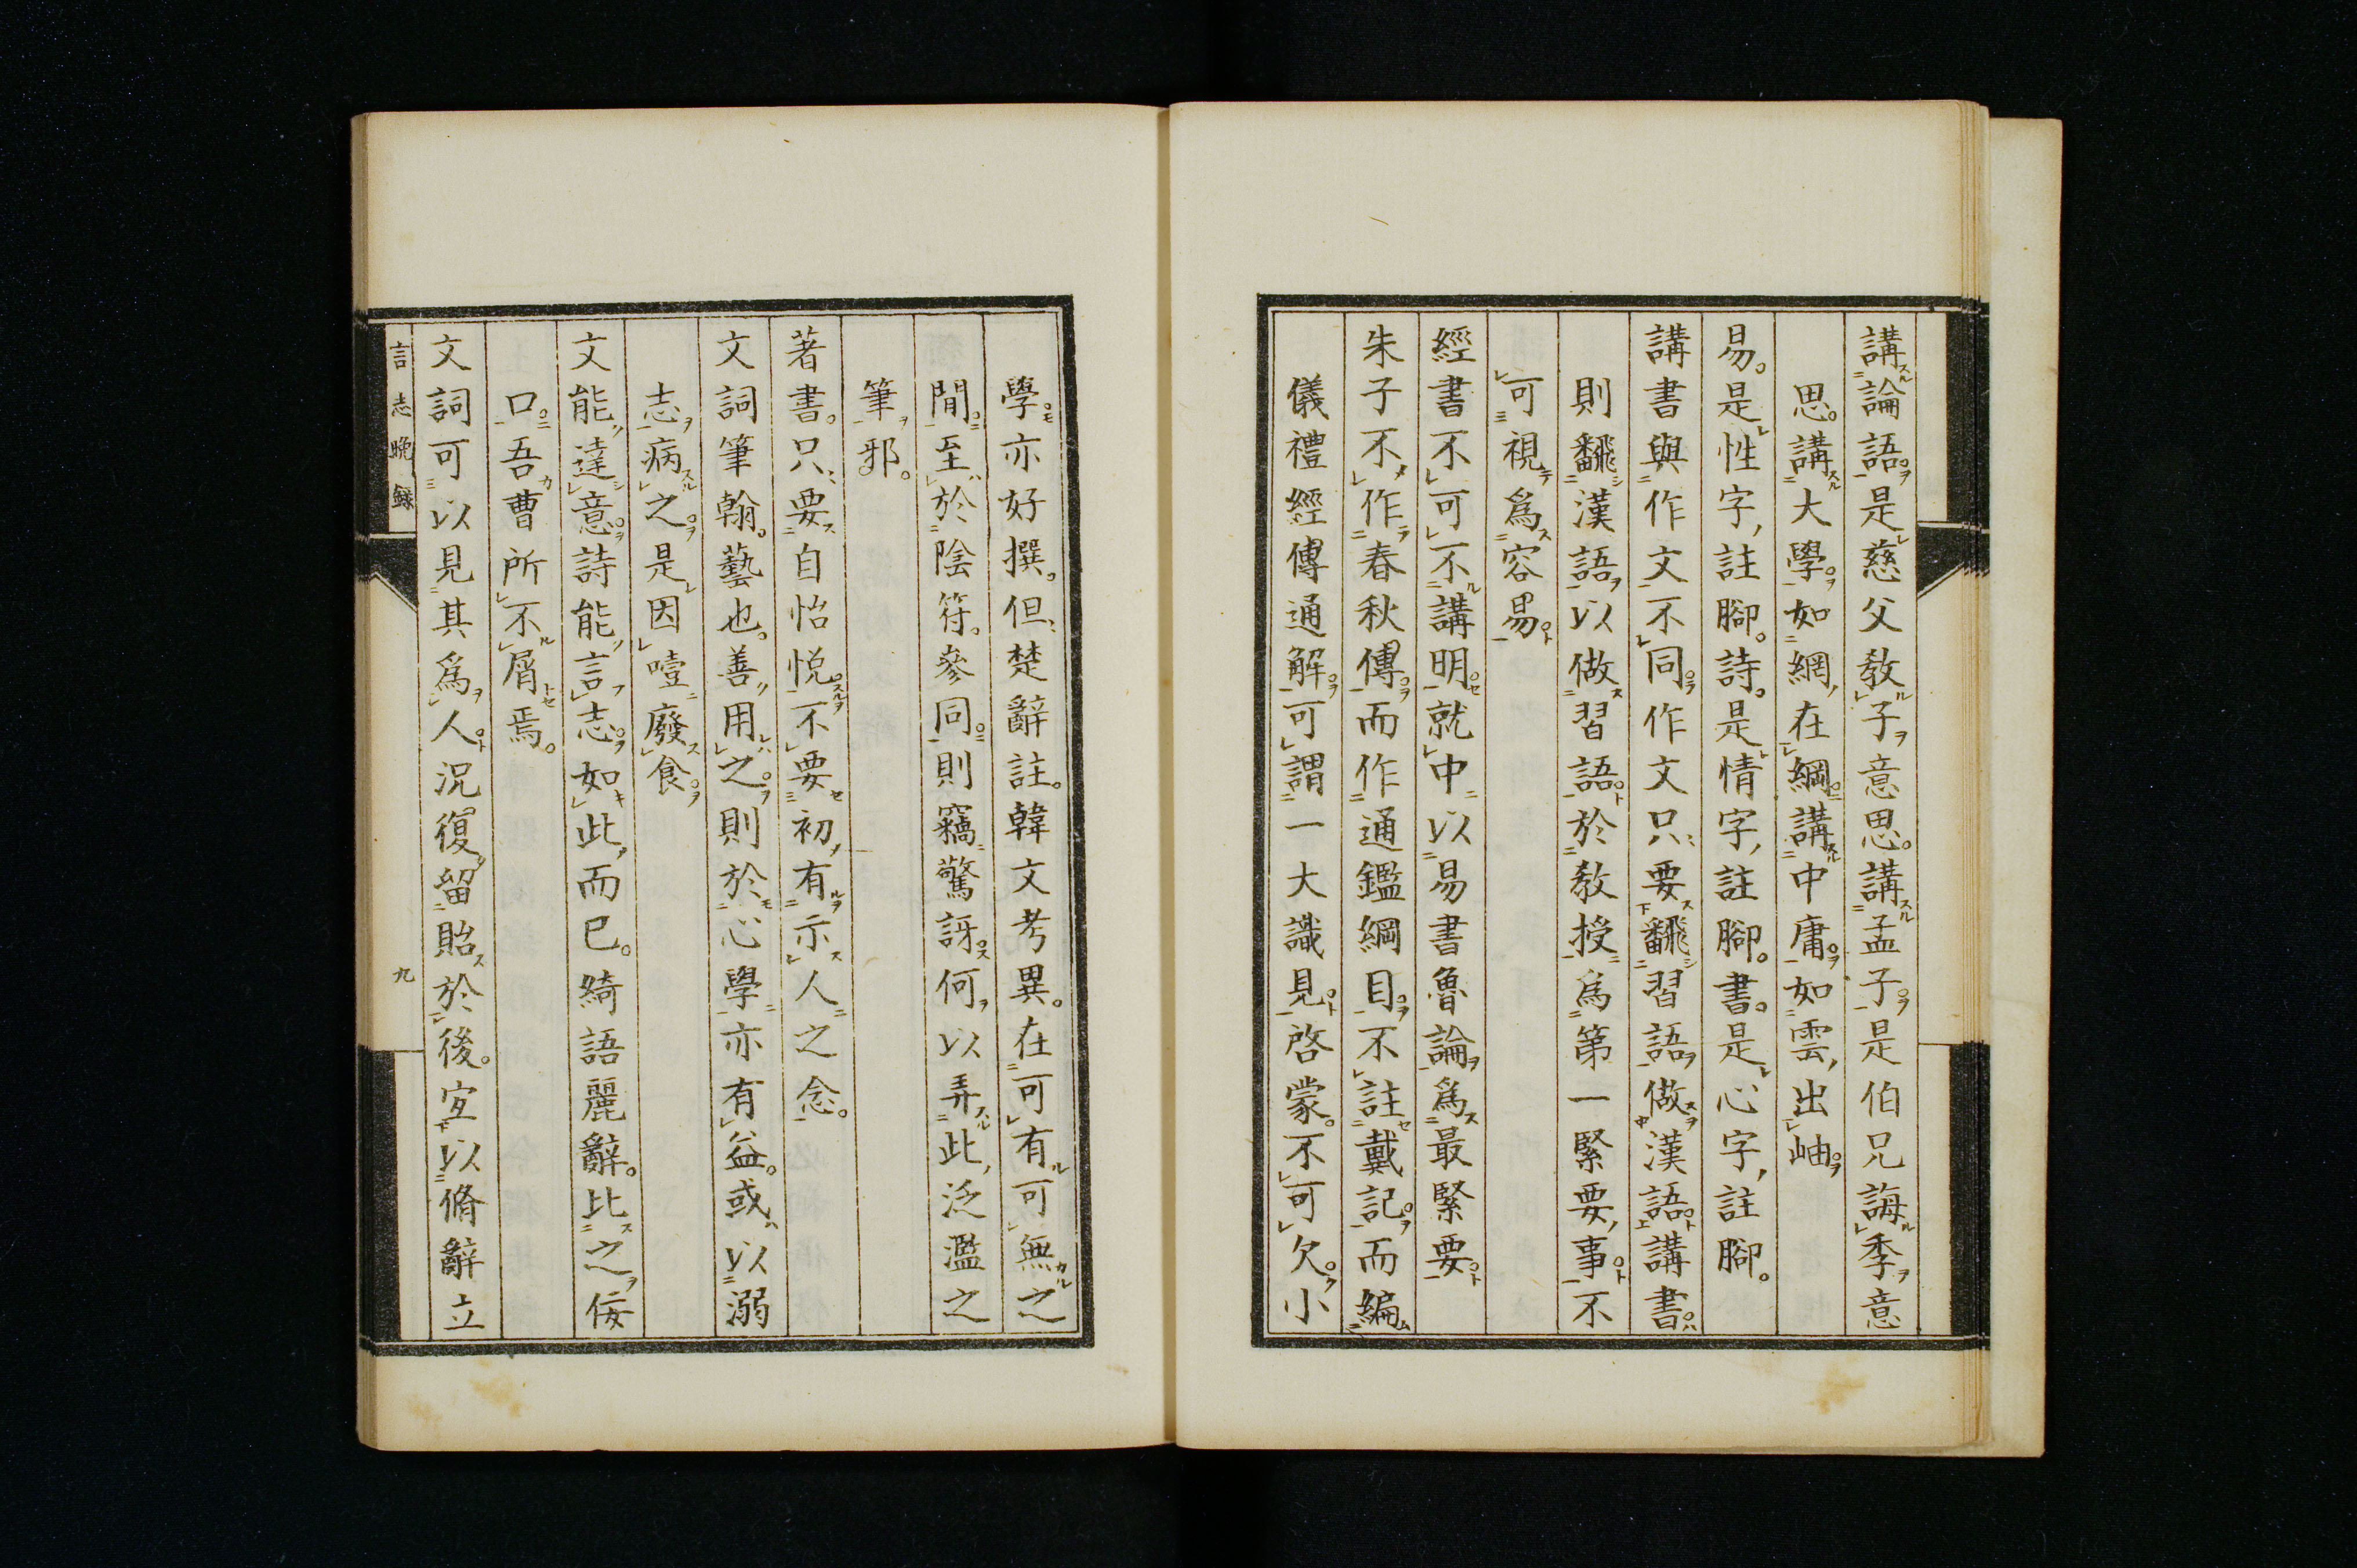 講論語是慈父教子意思。講孟子是伯兄誨季意
思。講大學如網在綱講中庸如雲出岫
易。是性字註腳。詩。是情字註腳。書。是心字註腳。
講書與作文不同作文只要飜習語倣漢語講書
則飜漢語以倣習語於教授爲第一緊要事不
可視爲容易
經書不可不講明就中以易書魯論爲最緊要
朱子不作春秋傳而作通鑑綱目不註戴記而編
儀禮經傳通解可謂一大識見啓蒙。不可欠小
學亦好撰。但楚辭註。韓文考異。在可有可無之
間。至於陰符。參同則竊驚訝何以弄此泛濫之
筆邪。
著書。只要自怡悦不要初有示人之念。
文詞筆翰。藝也。善用之則於心學亦有益。或以溺
志病之。是因噎廢食
文能達意詩能言志如此而已。綺語麗辭。比之佞
口吾曹所不屑焉。
文詞可以見其爲人況復留貽於後。宜以脩辭立
言志晩錄
九